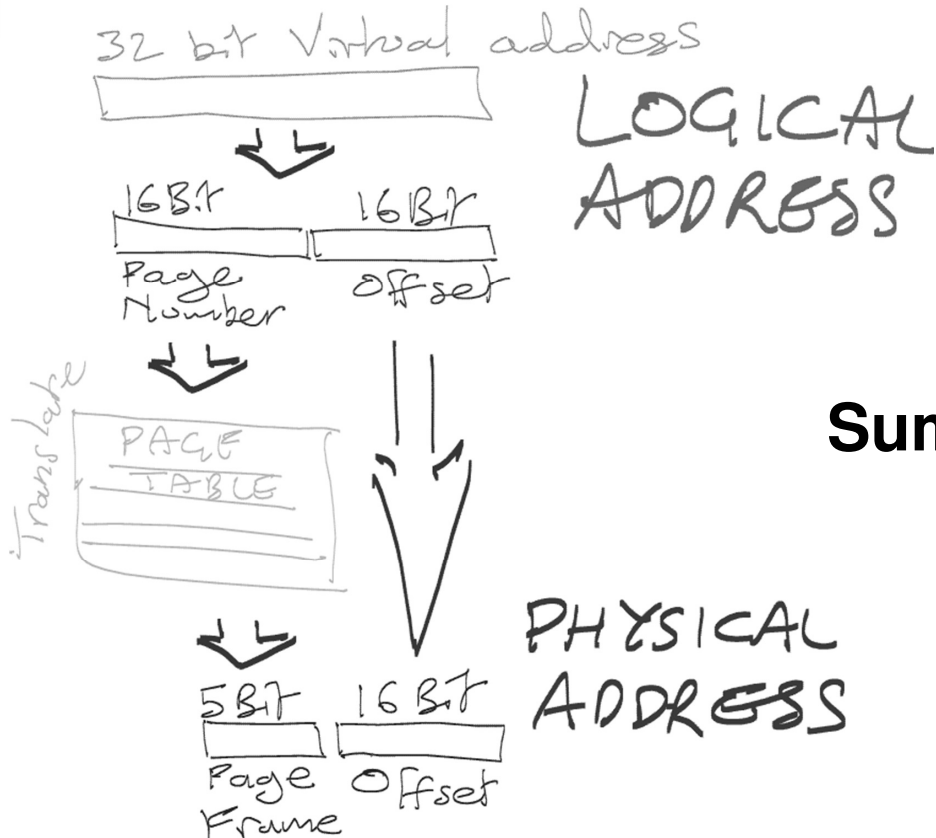 32 bit Virtual address
LOGICAL
ADDRESS
16Bit 16Bit
Page
Number
Offset
Translate
PAGE
TABLE
Sum
PHYSICAL
ADDRESS
5Bit 16Bit
Page
Frame
Offset